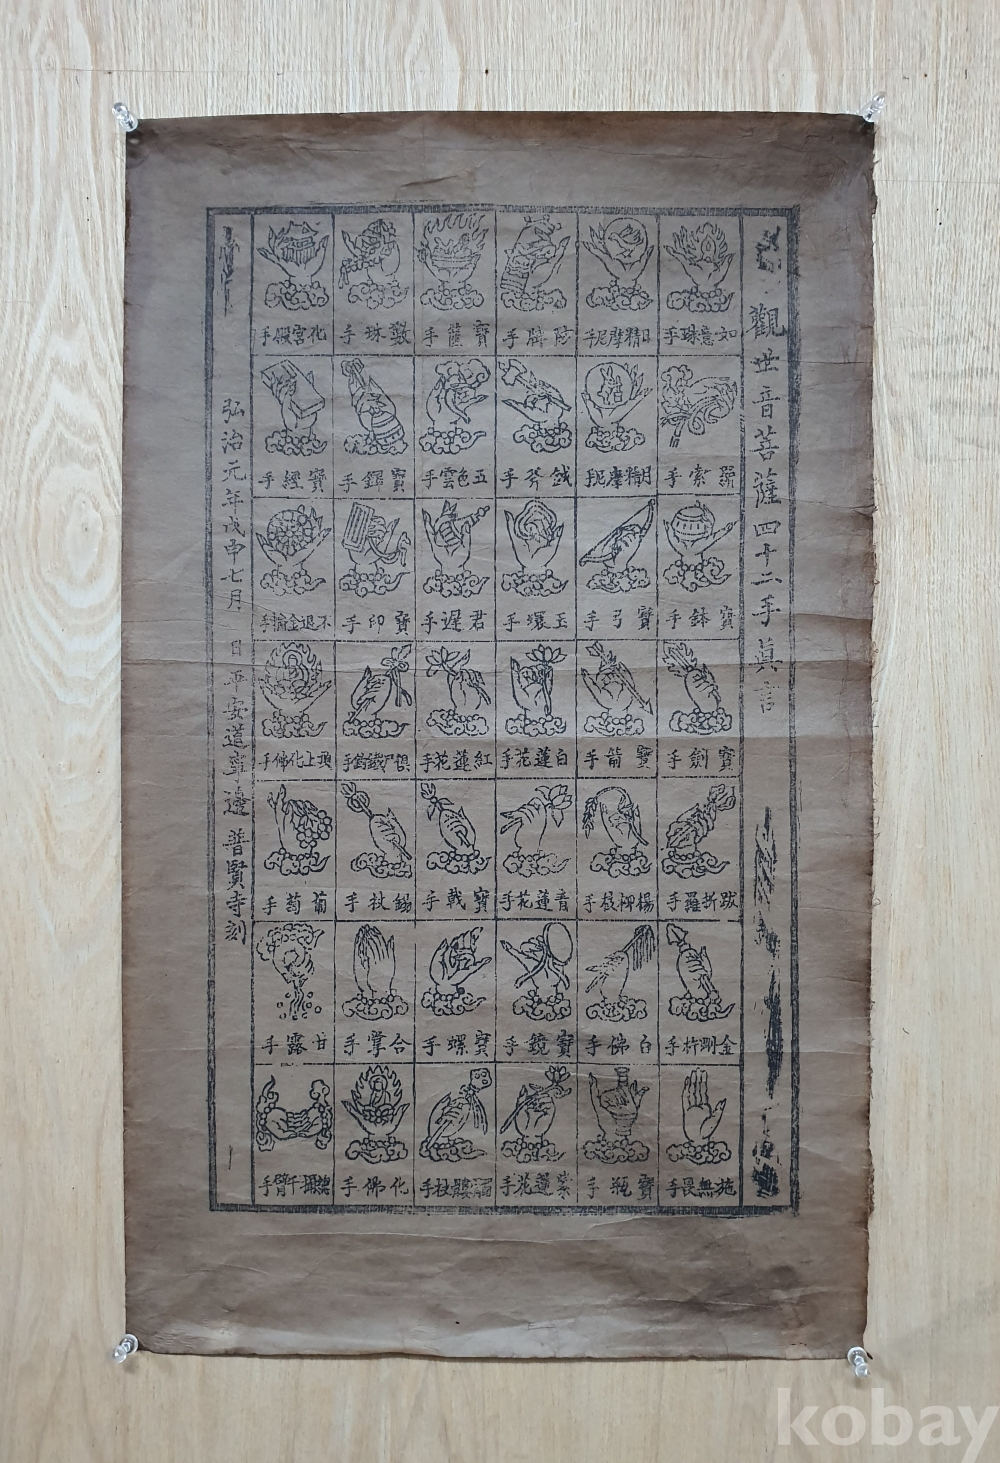 觀世音菩薩四十二手眞言
如意珠手
日精摩尼手
防牌手
寶薩手
數珠手
化宮殿手
羂索手
月精摩尼手
鉞斧手
五色雲手
寶鐸手
寶經手
寶鉢手
寶弓手
玉環手
君遲手
寶印手
不退金輪手
寶劍手
寶箭手
白蓮花手
紅蓮花手
頂上化佛手
跋折羅手
楊柳枝手
青蓮花手
寶戟手
錫杖手
葡萄手
金剛杵手
白佛手
寶鏡手
寶螺手
合掌手
甘露手
施無畏手
寶瓶手
紫蓮花手
髑髏杖手
化佛手
千臂手
弘治元年戊申七月 日平安道寧邊普賢寺刻
kobay